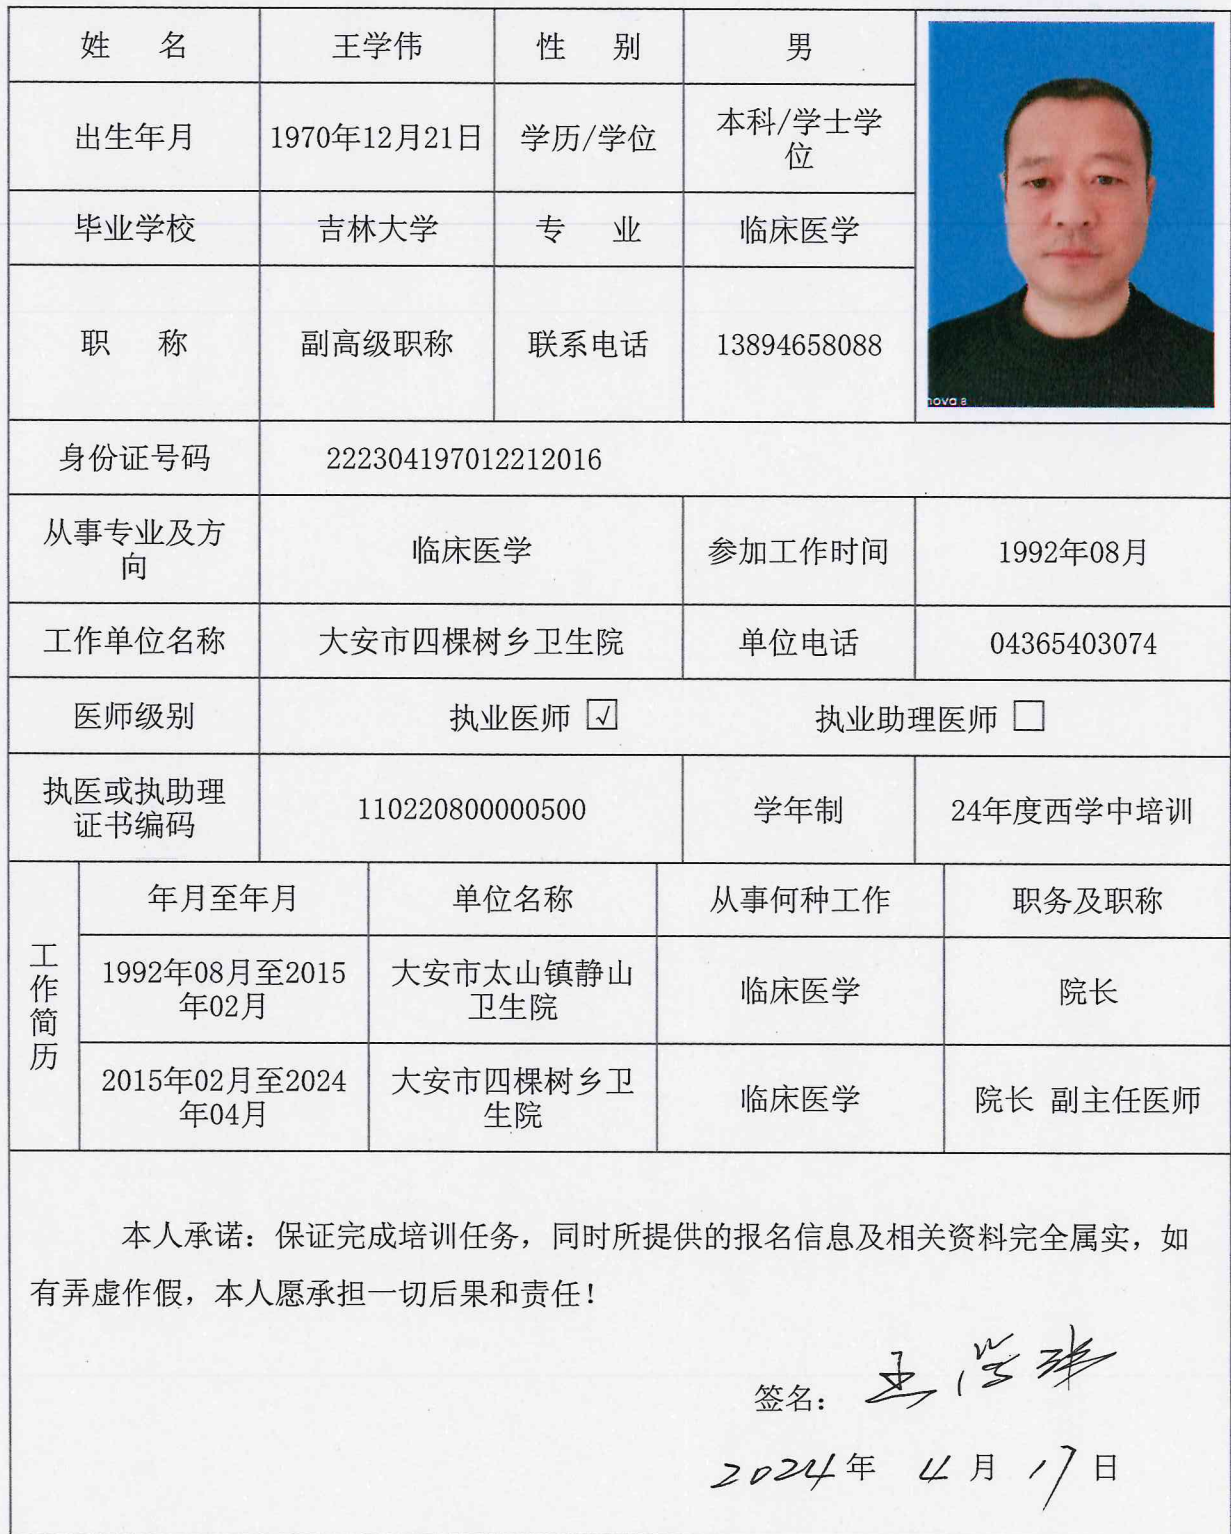 姓 名 王学伟 性 别 男
出生年月 1970年12月21日 学历/学位 本科/学士学
位
毕业学校 吉林大学 专 业 临床医学
职 称 副高级职称 联系电话 13894658088
nova 8
身份证号码 222304197012212016
从事专业及方
向 临床医学 参加工作时间 1992年08月
工作单位名称 大安市四棵树乡卫生院 单位电话 04365403074
医师级别 执业医师 ☑ 执业助理医师 □
执医或执助理
证书编码 110220800000500 学年制 24年度西学中培训
工作简历
年月至年月 单位名称 从事何种工作 职务及职称
1992年08月至2015
年02月 大安市太山镇静山
卫生院 临床医学 院长
2015年02月至2024
年04月 大安市四棵树乡卫
生院 临床医学 院长 副主任医师
本人承诺：保证完成培训任务，同时所提供的报名信息及相关资料完全属实，如
有弄虚作假，本人愿承担一切后果和责任！
签名：王学伟
2024年 4月 17日